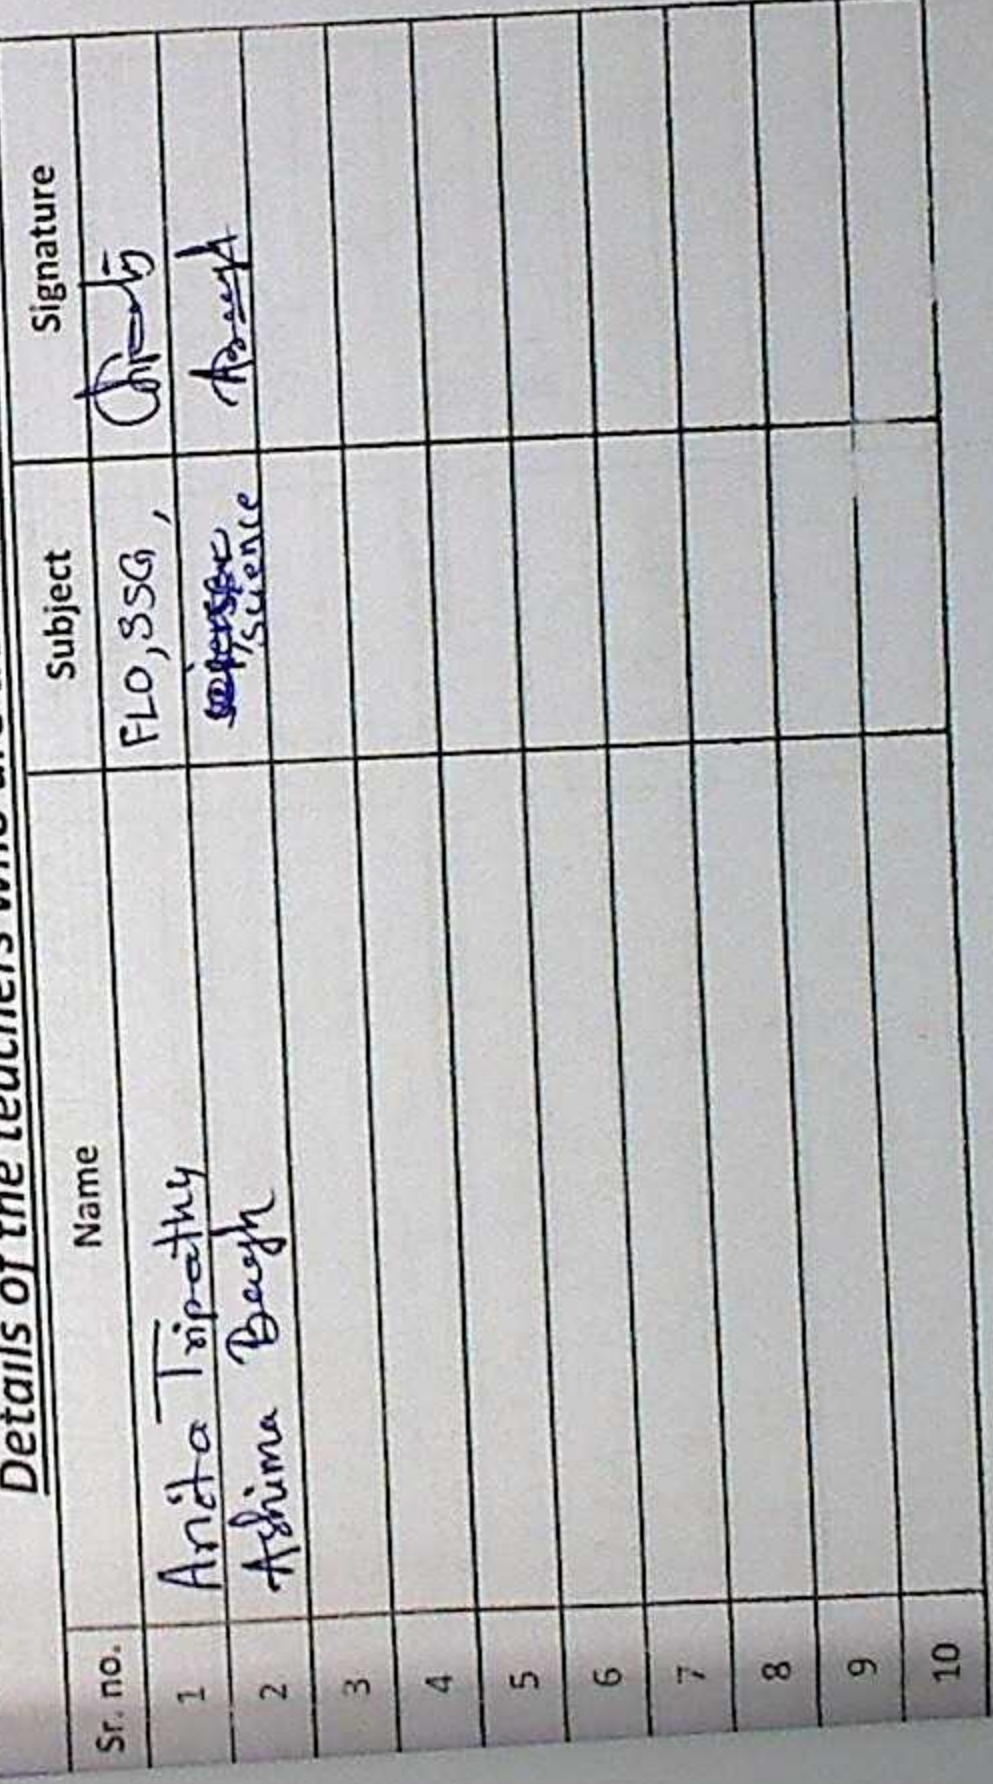 Details of the teachers who are
Sr. no. Name Subject Signature
1 Anita Tripathy FLO, SSG,
2 Ashima Bagh Science
3
4
5
6
7
8
9
10